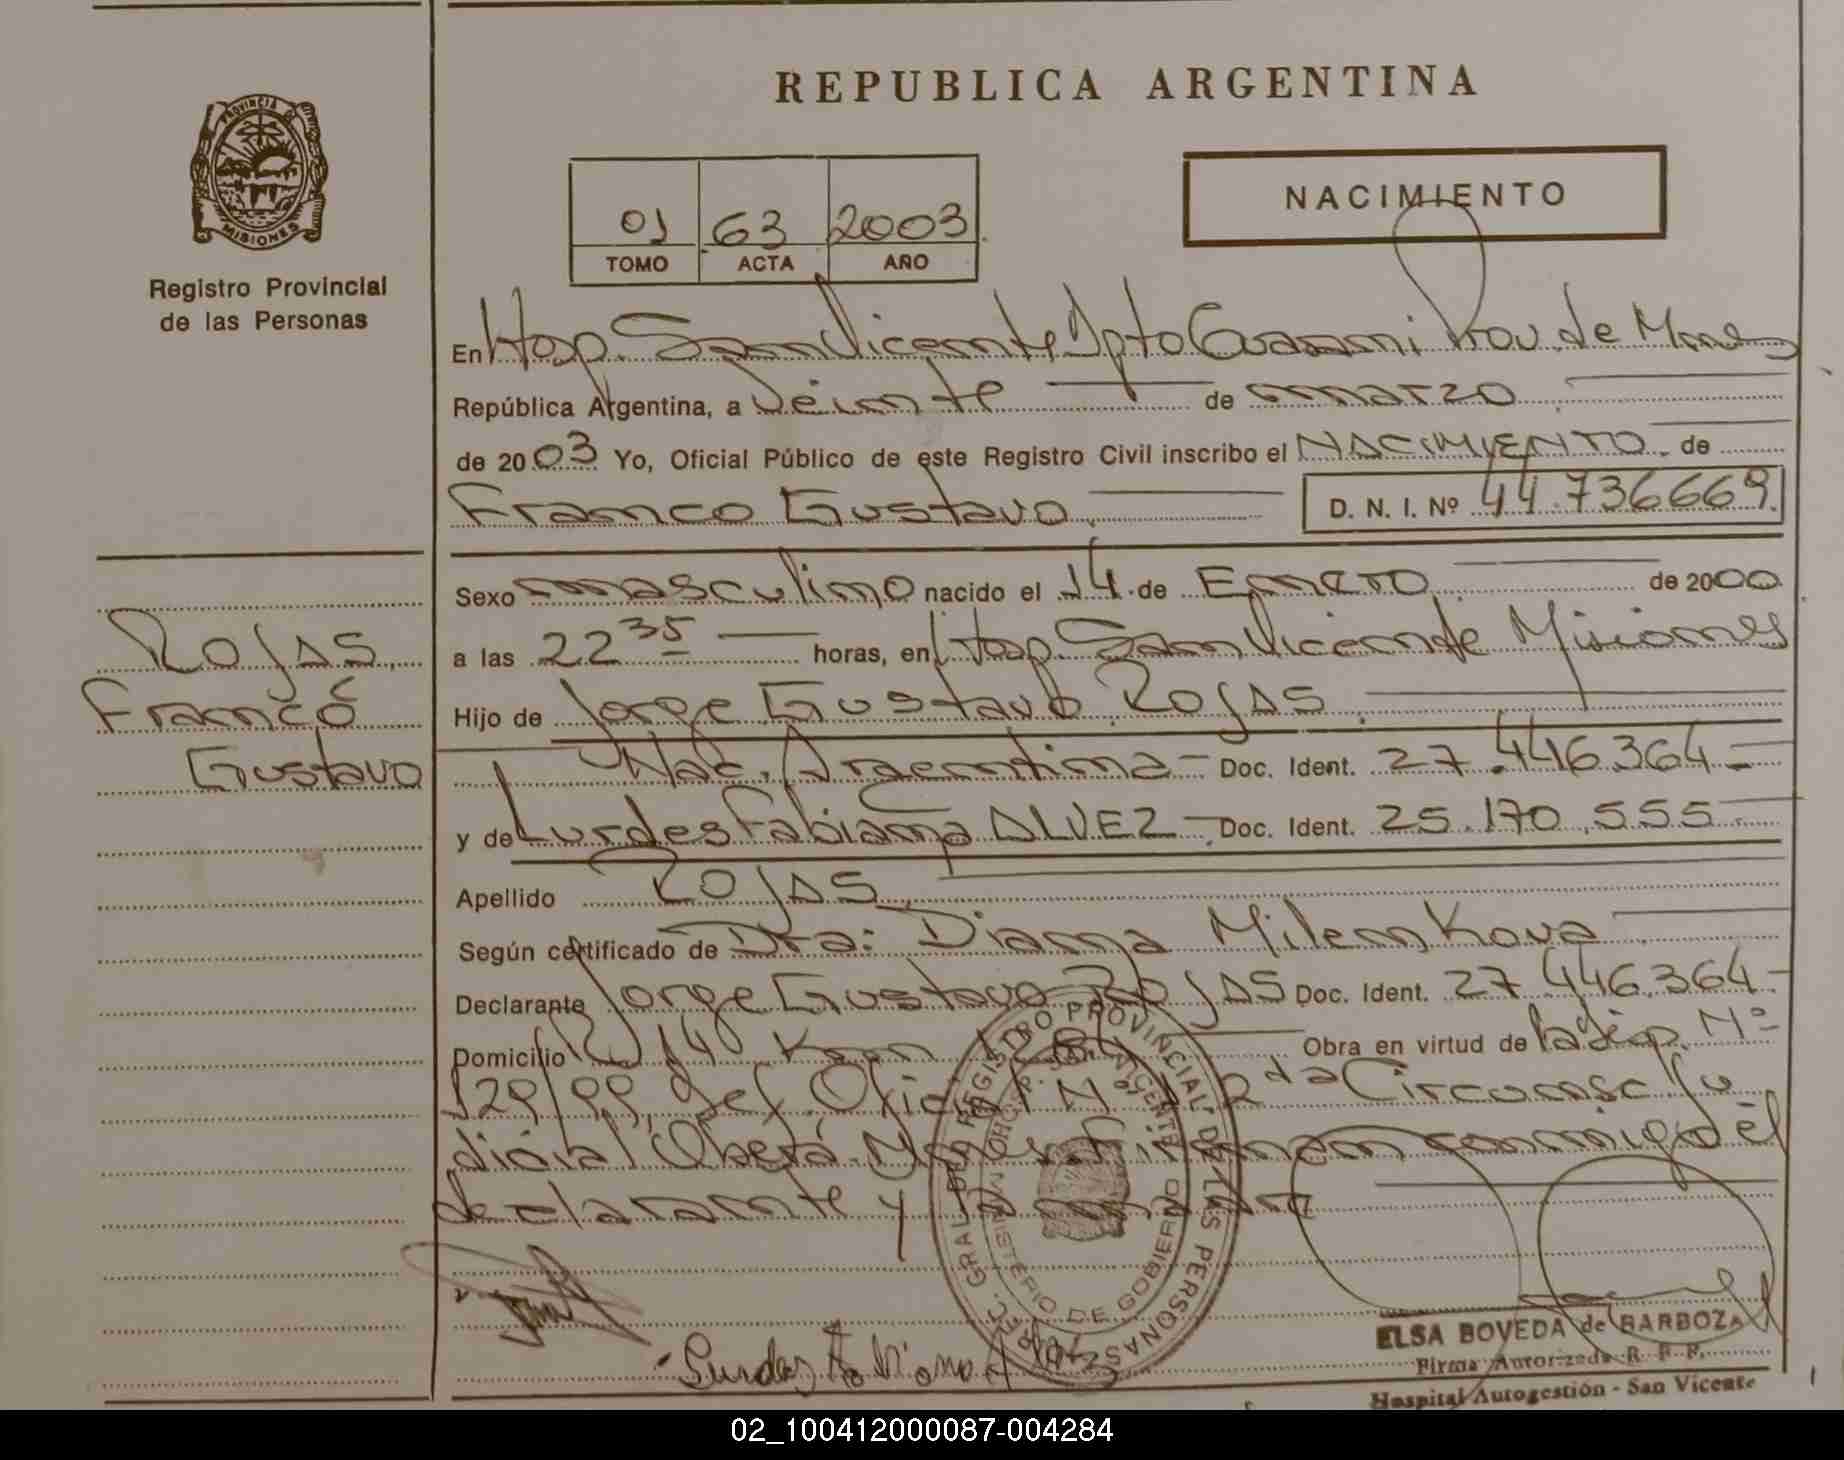 PROVINCIA DE
MISIONES
Registro Provincial
de las Personas
REPUBLICA ARGENTINA
01 63 2003
TOMO ACTA AÑO
NACIMIENTO
En Hosp. San Vicente Dpto Guarani Prov. de Mnes
República Argentina, a veinte de marzo
de 2003 Yo, Oficial Público de este Registro Civil inscribo el NACIMIENTO de
Franco Gustavo D. N. I. Nº 44.736669
Sexo masculino nacido el 14 de Enero de 2000
a las 22 35 horas, en Hosp. San Vicente Misiones
Hijo de Jorge Gustavo ROJAS
Nac. Argentina - Doc. Ident. 27.446.364 -
y de Lurdes Fabiana ALVEZ - Doc. Ident. 25.170.555
Apellido ROJAS
Según certificado de Dra: Diana Milenkova
Declarante Jorge Gustavo ROJAS Doc. Ident. 27 446.364 -
Domicilio R 14 Km Obra en virtud de la Disp. Nº
129/99 del Nº 2da Circunsc. Ju
dicial Oberá. Mnes. Firman conmigo el
declarante y la
ROJAS
Franco
Gustavo
REGISTRO PROVINCIAL DE LAS PERSONAS
MINISTERIO DE GOBIERNO
ELSA BOVEDA de BARBOZA
Firma Autorizada R. P. P.
Hospital Autogestión - San Vicente
02_100412000087-004284